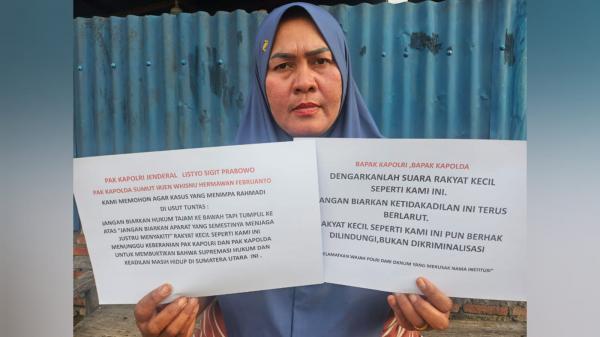 PAK KAPOLRI JENDERAL LISTYO SIGIT PRABOWO
PAK KAPOLDA SUMUT IRJEN WHISNU HERMAWAN FEBRUANTO
KAMI MEMOHON AGAR KASUS YANG MENIMPA RAHMADI
DI USUT TUNTAS :
JANGAN BIARKAN HUKUM TAJAM KE BAWAH TAPI TUMPUL KE
ATAS "JANGAN BIARKAN APARAT YANG SEMESTINYA MENJAGA
JUSTRU MENYAKITI" RAKYAT KECIL SEPERTI KAMI
MENUNGGU KEBERANIAN PAK KAPOLRI DAN PAK KAPOLDA
UNTUK MEMBUKTIKAN BAHWA SUPREMASI HUKUM DAN
KEADILAN MASIH HIDUP DI SUMATERA UTARA INI .
BAPAK KAPOLRI ,BAPAK KAPOLDA
DENGARKANLAH SUARA RAKYAT KECIL
SEPERTI KAMI INI.
JANGAN BIARKAN KETIDAKADILAN INI TERUS
BERLARUT.
RAKYAT KECIL SEPERTI KAMI INI PUN BERHAK
DILINDUNGI,BUKAN DIKRIMINALISASI
WAJAH POLRI DARI OKNUM YANG MERUSAK NAMA INSTITUSI"